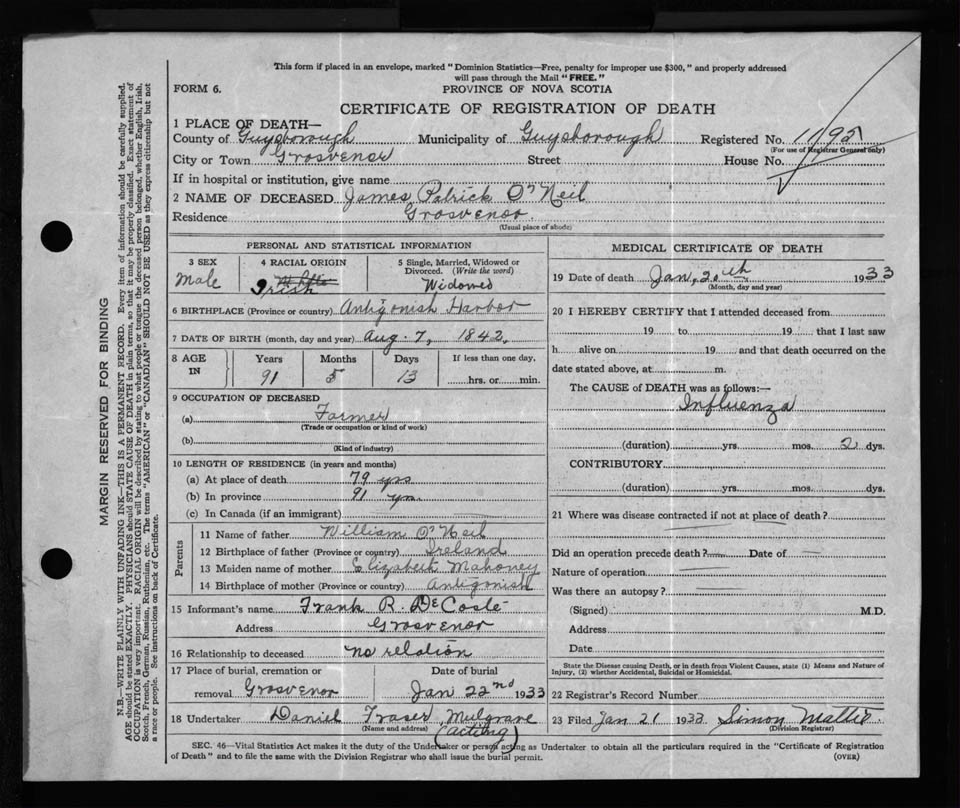 This form if placed in an envelope, marked "Dominion Statistics—Free, penalty for improper use $300," and properly addressed
will pass through the Mail "FREE."
FORM 6.
PROVINCE OF NOVA SCOTIA
CERTIFICATE OF REGISTRATION OF DEATH
1 PLACE OF DEATH—
County of Guysborough Municipality of Guysborough Registered No. 1195
(For use of Registrar General only)
City or Town Grosvenor Street House No.
If in hospital or institution, give name
2 NAME OF DECEASED James Patrick O'Neil
Residence Grosvenor.
(Usual place of abode)
PERSONAL AND STATISTICAL INFORMATION
3 SEX 4 RACIAL ORIGIN 5 Single, Married, Widowed or Divorced. (Write the word)
Male White Irish Widowed
6 BIRTHPLACE (Province or country) Antigonish Harbor
7 DATE OF BIRTH (month, day and year) Aug. 7, 1842.
8 AGE IN Years Months Days If less than one day,
91 5 13 hrs. or min.
9 OCCUPATION OF DECEASED
(a) Farmer
(Trade or occupation or kind of work)
(b)
(Kind of industry)
10 LENGTH OF RESIDENCE (in years and months)
(a) At place of death 79 yrs
(b) In province 91 yrs
(c) In Canada (if an immigrant)
Parents
11 Name of father William O'Neil
12 Birthplace of father (Province or country) Ireland
13 Maiden name of mother Elizabeth Mahoney
14 Birthplace of mother (Province or country) Antigonish
15 Informant's name Frank R. DeCoste
Address Grosvenor
16 Relationship to deceased no relation
17 Place of burial, cremation or removal Grosvenor Date of burial Jan 22nd 1933
18 Undertaker Daniel Fraser, Mulgrave
(Name and address) (acting)
MEDICAL CERTIFICATE OF DEATH
19 Date of death Jan. 20th 1933
(Month, day and year)
20 I HEREBY CERTIFY that I attended deceased from
19 to 19 that I last saw
h alive on 19 and that death occurred on the
date stated above, at m.
The CAUSE of DEATH was as follows:—
Influenza
(duration) yrs. mos. 2 dys.
CONTRIBUTORY
(duration) yrs. mos. dys.
21 Where was disease contracted if not at place of death?
Did an operation precede death? — Date of —
Nature of operation
Was there an autopsy?
(Signed) M.D.
Address
Date
State the Disease causing Death, or in death from Violent Causes, state (1) Means and Nature of
Injury, (2) whether Accidental, Suicidal or Homicidal.
22 Registrar's Record Number
23 Filed Jan 21 1933 Simon Mattie.
(Division Registrar)
SEC. 46—Vital Statistics Act makes it the duty of the Undertaker or person acting as Undertaker to obtain all the particulars required in the "Certificate of Registration
of Death" and to file the same with the Division Registrar who shall issue the burial permit. (OVER)
MARGIN RESERVED FOR BINDING
N.B.—WRITE PLAINLY WITH UNFADING INK—THIS IS A PERMANENT RECORD. Every item of information should be carefully supplied.
AGE should be stated EXACTLY. PHYSICIANS should STATE CAUSE OF DEATH in plain terms, so that it may be properly classified. Exact statement of
OCCUPATION is very important. RACIAL ORIGIN will be described by stating to what people or tongue the deceased person belonged, whether English, Irish,
Scotch, French, German, Russian, Ruthenian, etc. The terms "AMERICAN" or "CANADIAN" SHOULD NOT BE USED as they express citizenship but not
a race or people. See instructions on back of Certificate.